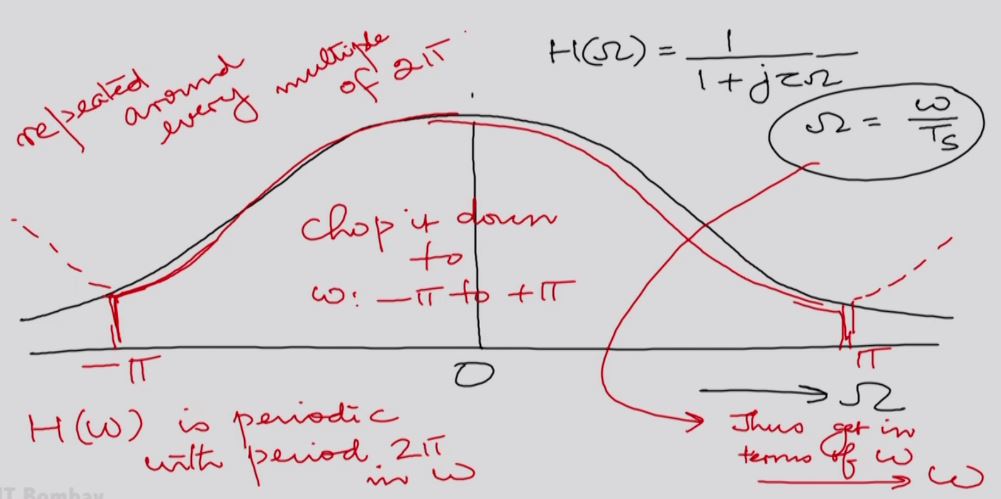 repeated
around
every multiple
of 2π
H(Ω) = 1 / (1 + jτΩ)
Ω = ω / Ts
chop it down
to
ω: -π to +π
-π
0
π
Ω
H(ω) is periodic
with period 2π
in ω
Thus get in
terms of ω
ω
IT Bombay